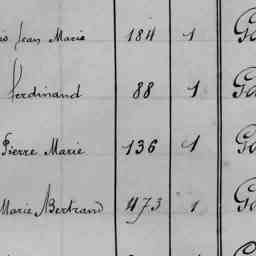 Jean Marie 184 1
Ferdinand 88 1
Pierre Marie 136 1
Marie Bertrand 473 1